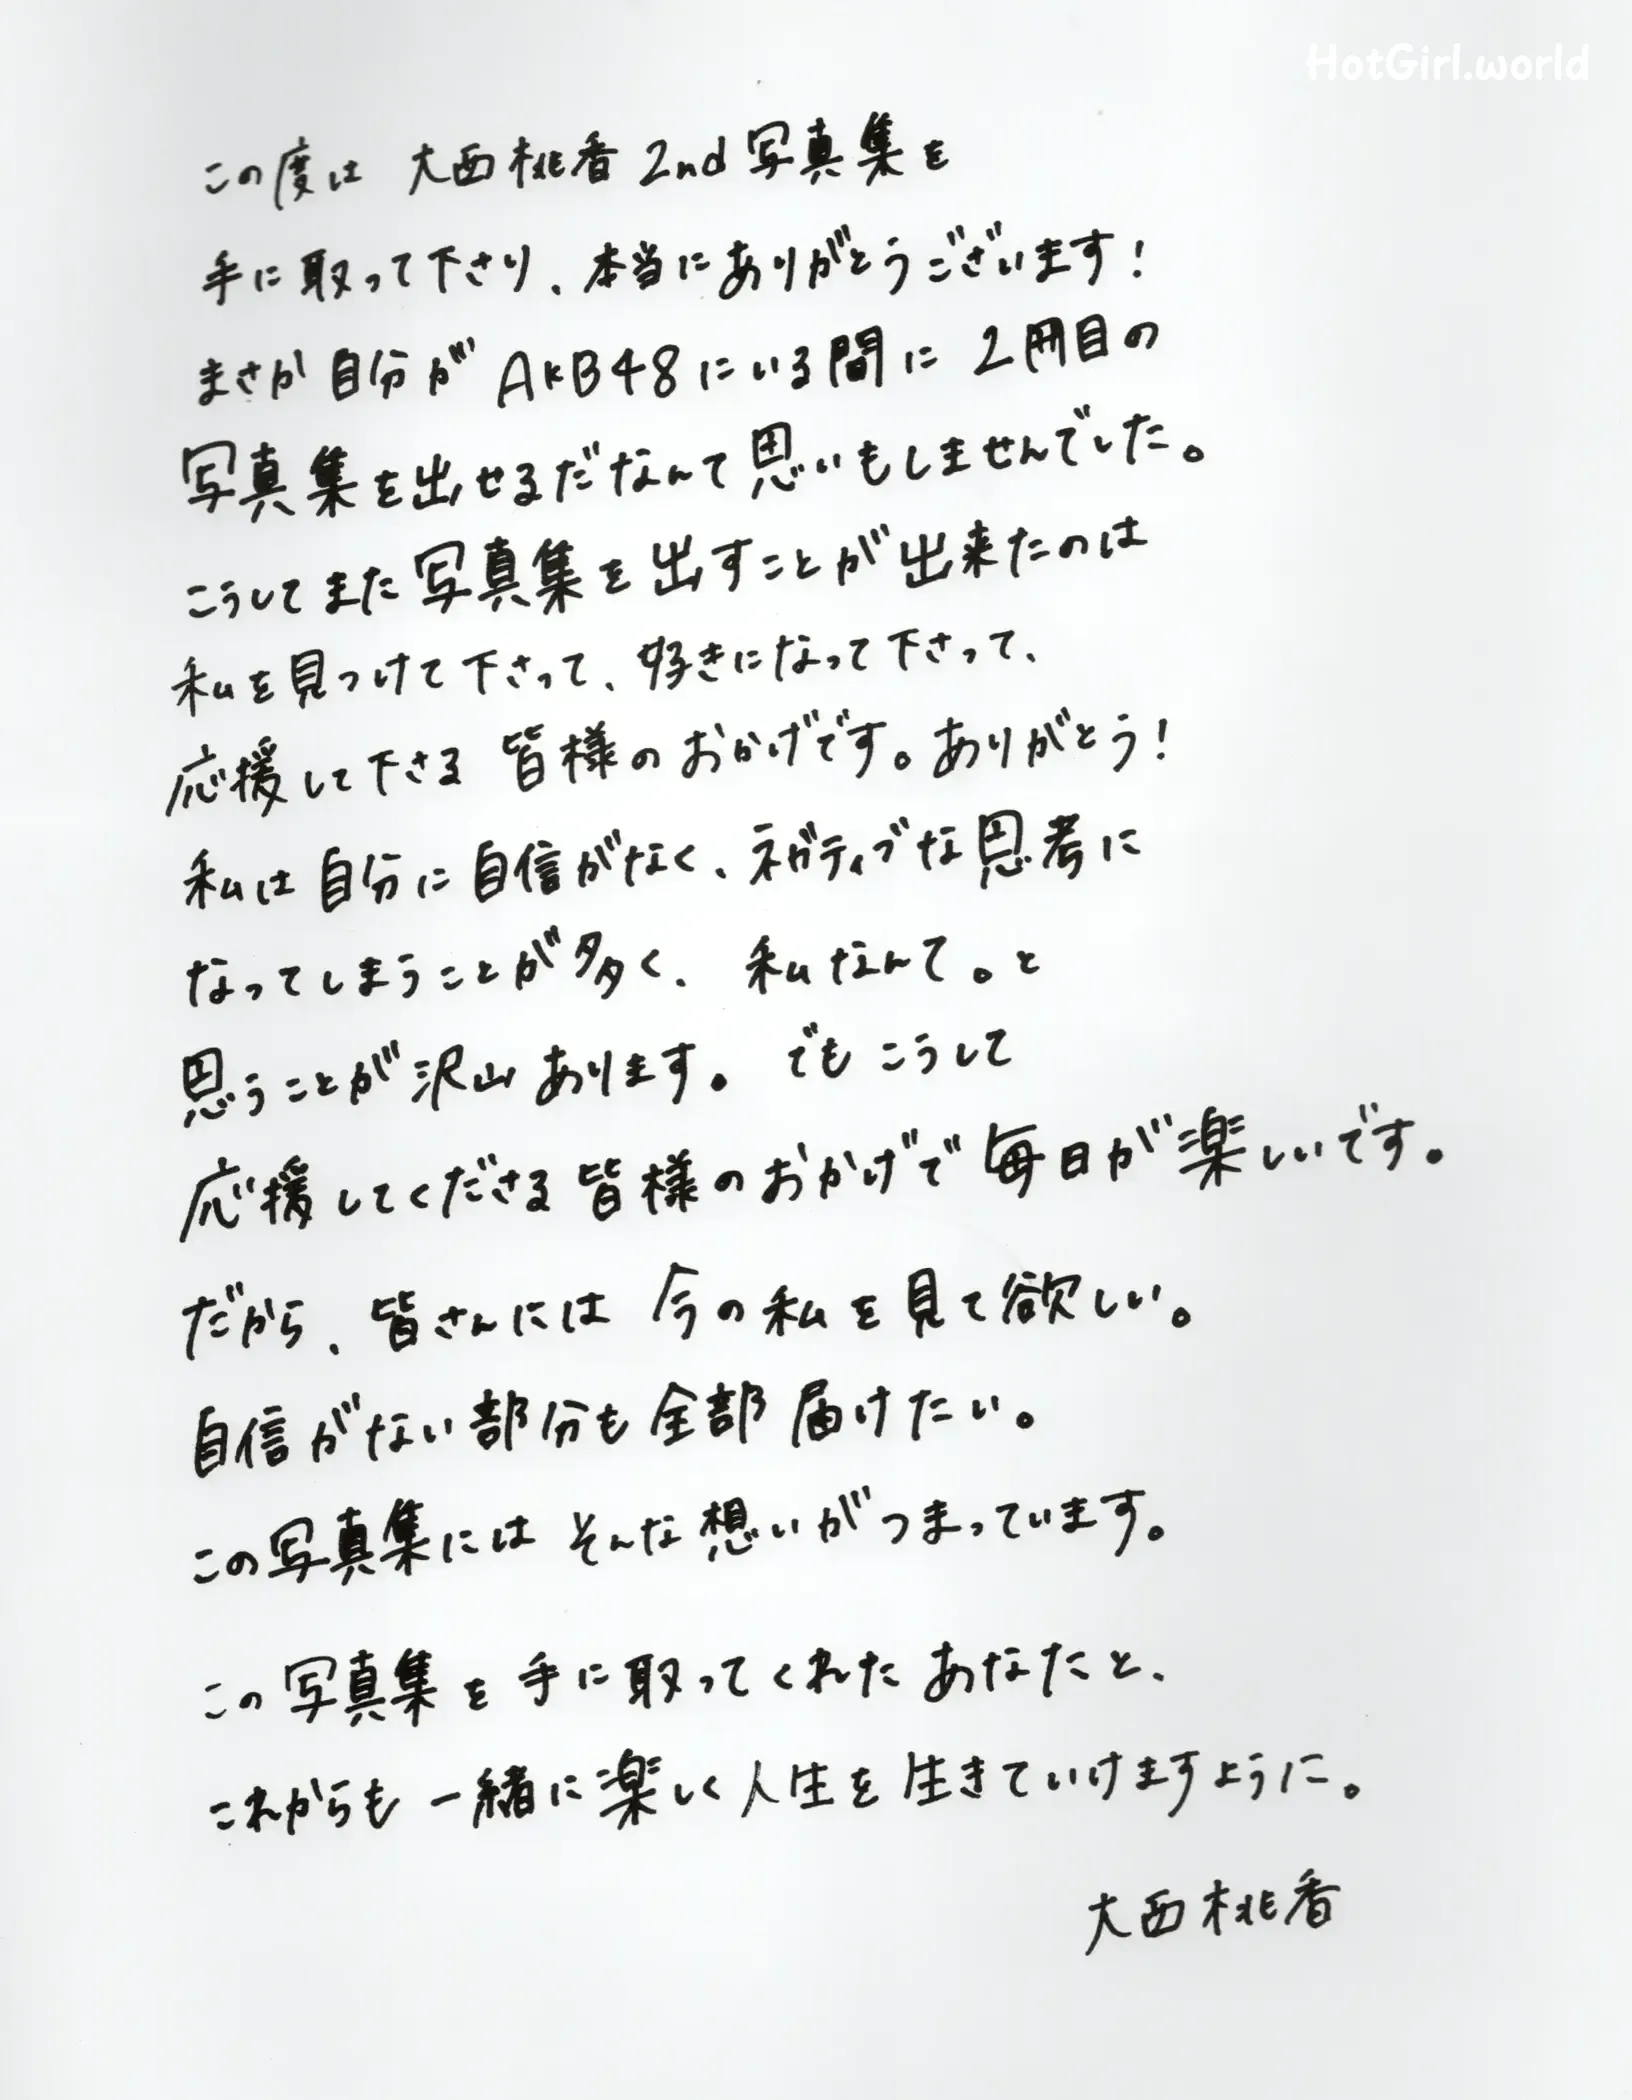 HotGirl.world
この度は 大西桃香 2nd写真集を
手に取って下さり、本当にありがとうございます!
まさか自分がAKB48にいる間に2冊目の
写真集を出せるだなんて思いもしませんでした。
こうしてまた写真集を出すことが出来たのは
私を見つけて下さって、好きになって下さって、
応援して下さる 皆様のおかげです。ありがとう!
私は自分に自信がなく、ネガティブな思考に
なってしまうことが多く、私なんて。と
思うことが沢山あります。でもこうして
応援してくださる皆様のおかげで毎日が楽しいです。
だから、皆さんには 今の私を見て欲しい。
自信がない部分も全部届けたい。
この写真集には そんな想いがつまっています。
この写真集を手に取ってくれたあなたと、
これからも一緒に楽しく人生を生きていけますように。
大西桃香